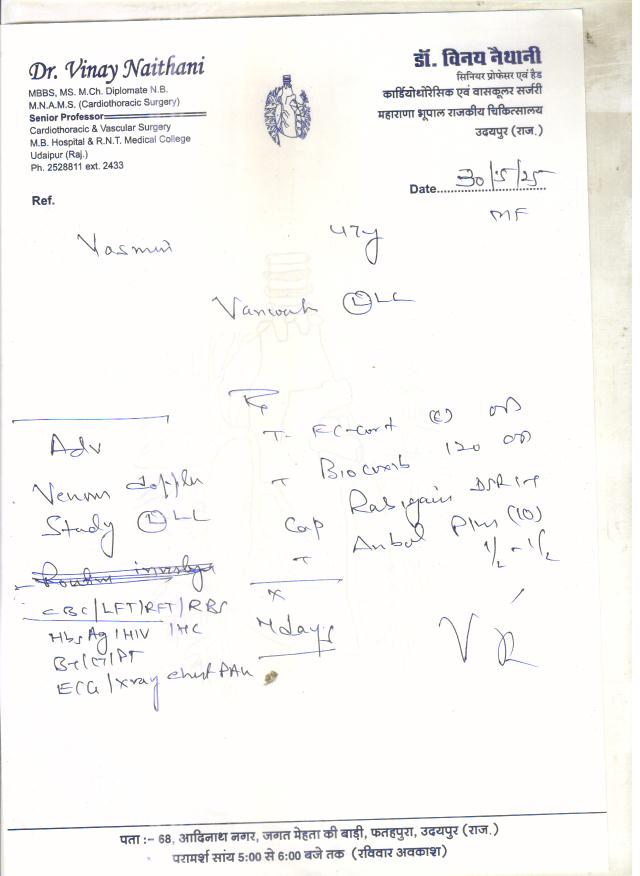 Dr. Vinay Naithani
MBBS, MS. M.Ch. Diplomate N.B.
M.N.A.M.S. (Cardiothoracic Surgery)
Senior Professor
Cardiothoracic & Vascular Surgery
M.B. Hospital & R.N.T. Medical College
Udaipur (Raj.)
Ph. 2528811 ext. 2433
डॉ. विनय नैथानी
सिनियर प्रोफेसर एवं हैड
कार्डियोथोरेसिक एवं वासकूलर सर्जरी
महाराणा भूपाल राजकीय चिकित्सालय
उदयपुर (राज.)
Date 30/5/25
Ref.
MF
Yasmin 47y
(L) LL
Rx
Adv
Venous doppler
Study (L) LL
T- EC-Cort (C) OD
T Biocoxib 120 OD
Cap DSR
T Plus (10)
1/2 - 1/2
CBC/LFT/RFT/RBS
HbsAg/HIV
BT/CT/PT
ECG/Xray chest PAv
x
7 days
पता :– 68, आदिनाथ नगर, जगत मेहता की बाड़ी, फतहपुरा, उदयपुर (राज.)
परामर्श सांय 5:00 से 6:00 बजे तक (रविवार अवकाश)